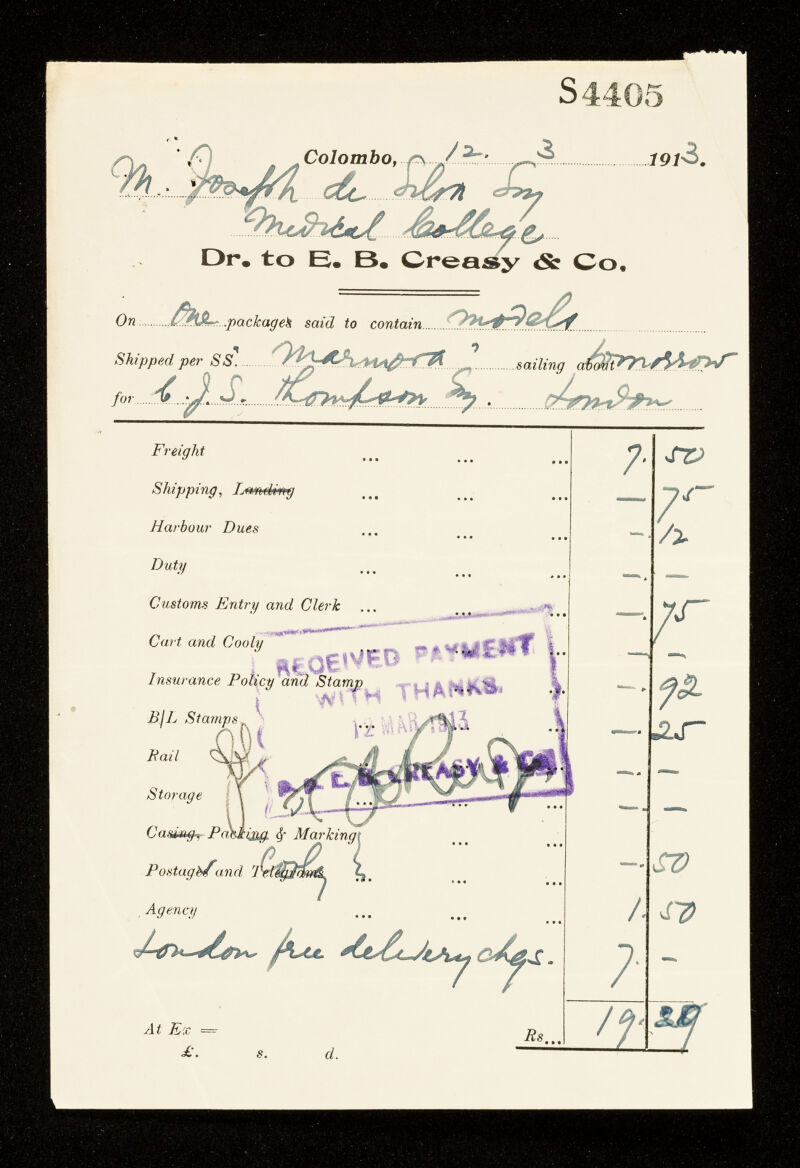 S4405
Colombo, 12. 3 1913.
M. Joseph de Silva Esq
Medical College
Dr. to E. B. Creasy & Co.
On One packages said to contain models
Shipped per SS. "Marmora" sailing about tomorrow
for C. J. S. Thompson Esq. London
Freight ... ... ... 7. 50
Shipping, Landing ... ... ... — 75
Harbour Dues ... ... ... — 12
Duty ... ... ... — —
Customs Entry and Clerk ... ... ... — 75
Cart and Cooly ... ... ... — —
Insurance Policy and Stamp ... ... — 92
B/L Stamps ... ... ... — 25
Rail ... ... ... — —
Storage ... ... ... — —
Casing, Packing & Marking ... ...
Postages and Telegrams Cooly ... ... ... — 50
Agency ... ... ... 1. 50
London free delivery chgs. 7. —
At Ex = Rs... 19. 29
£. s. d.
RECEIVED PAYMENT
WITH THANKS.
12 MAR 1913
E. B. CREASY & Co.